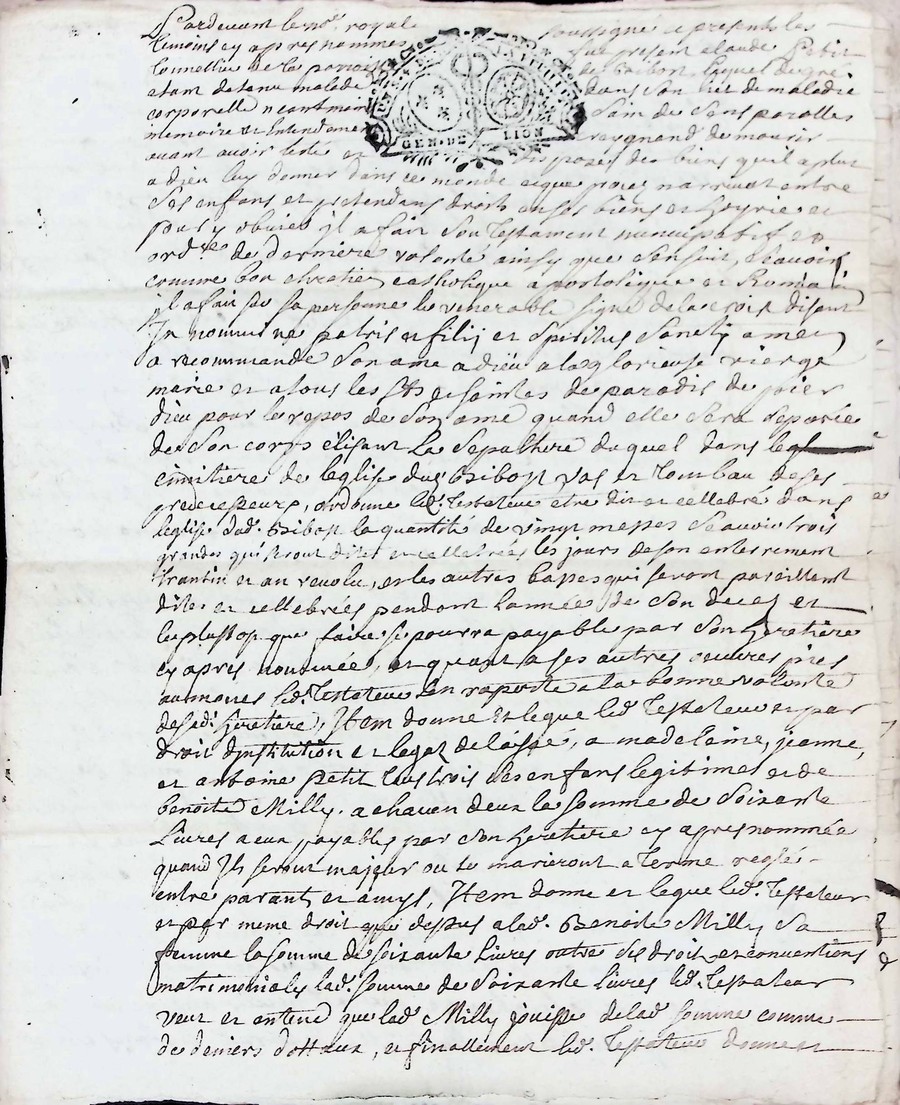 Pardevant le no.re royal soussigné et presents les
temoins cy apres nommes fut present claude Petit
tonnellier de la paroisse de Thibost lequel de gré
etant detenu malade dans son lict de maladie
corporelle neantmoins Sain de Sens parolles
memoire et Entendement craygnand de mourir
avant avoir testé et disposés des biens quil a plut
a dieu luy donner dans ce monde et que procez narrivat entre
Ses enfans et pretendans droits en ses biens et hoyrie et
pour y obvier jl a fait Son Testament nuncupatif et
ord.re de derniere volonté ainsy que Sensuit, Scavoir
comme bon chretien catholique apostolique et Romain
jl a fait sur sa personne le venerable signe de la croix disant
In nomine patris et filij et Spiritus Sancty amen
a recommandé Son ame a dieu a la glorieuse vierge
marie et a tous les Sts et saintes de paradis de prier
dieu pour le repos de Son ame quand elle Sera separée
de Son corps élisant La Sepulture duquel dans le
cimitiere de leglise dud Thibost vas et tombau de ses
predecesseurs, ordonne led. Testateur etre dit et cellebré dans
leglise dud. Thibost la quantité de vingt messes Scavoir trois
grandes qui seront dites et cellebrées les jours de son enterrement
trantin et an revolu, et les autres basses qui seront pareillemt
dites et cellebrées pendant lannée de Son deces et
le plustost que faire se pourra payable par Son heretiere
cy apres nommée, et quant a ses autres oeuvres pies
aumones led. Testateur sen raporte a la bonne volonté
de sad. heretiere, Item donne et legue led. Testateur et par
droit dinstitution et legat delaissé, a madelaine, jeanne,
et antoine Petit tous trois ses enfans legitimes et de
benoite Milly. a chacun deux la somme de Soixante
Livres a eux payables par Son heretiere cy apres nommée
quand Ils seront majeur ou se marieront a terme reglé
entre parant et amys, Item donne et legue led. Testateur
et par meme droit que dessus a lad. Benoite Milly Sa
femme la somme de soixante Livres outre ses droit et conventions
matrimoniales lad. somme de Soixante livres led. Testateur
veut et entend que lad. Milly jouisse de lad. somme comme
de deniers dottaux, et finallement led. Testateur donne et
GEN. DE LION